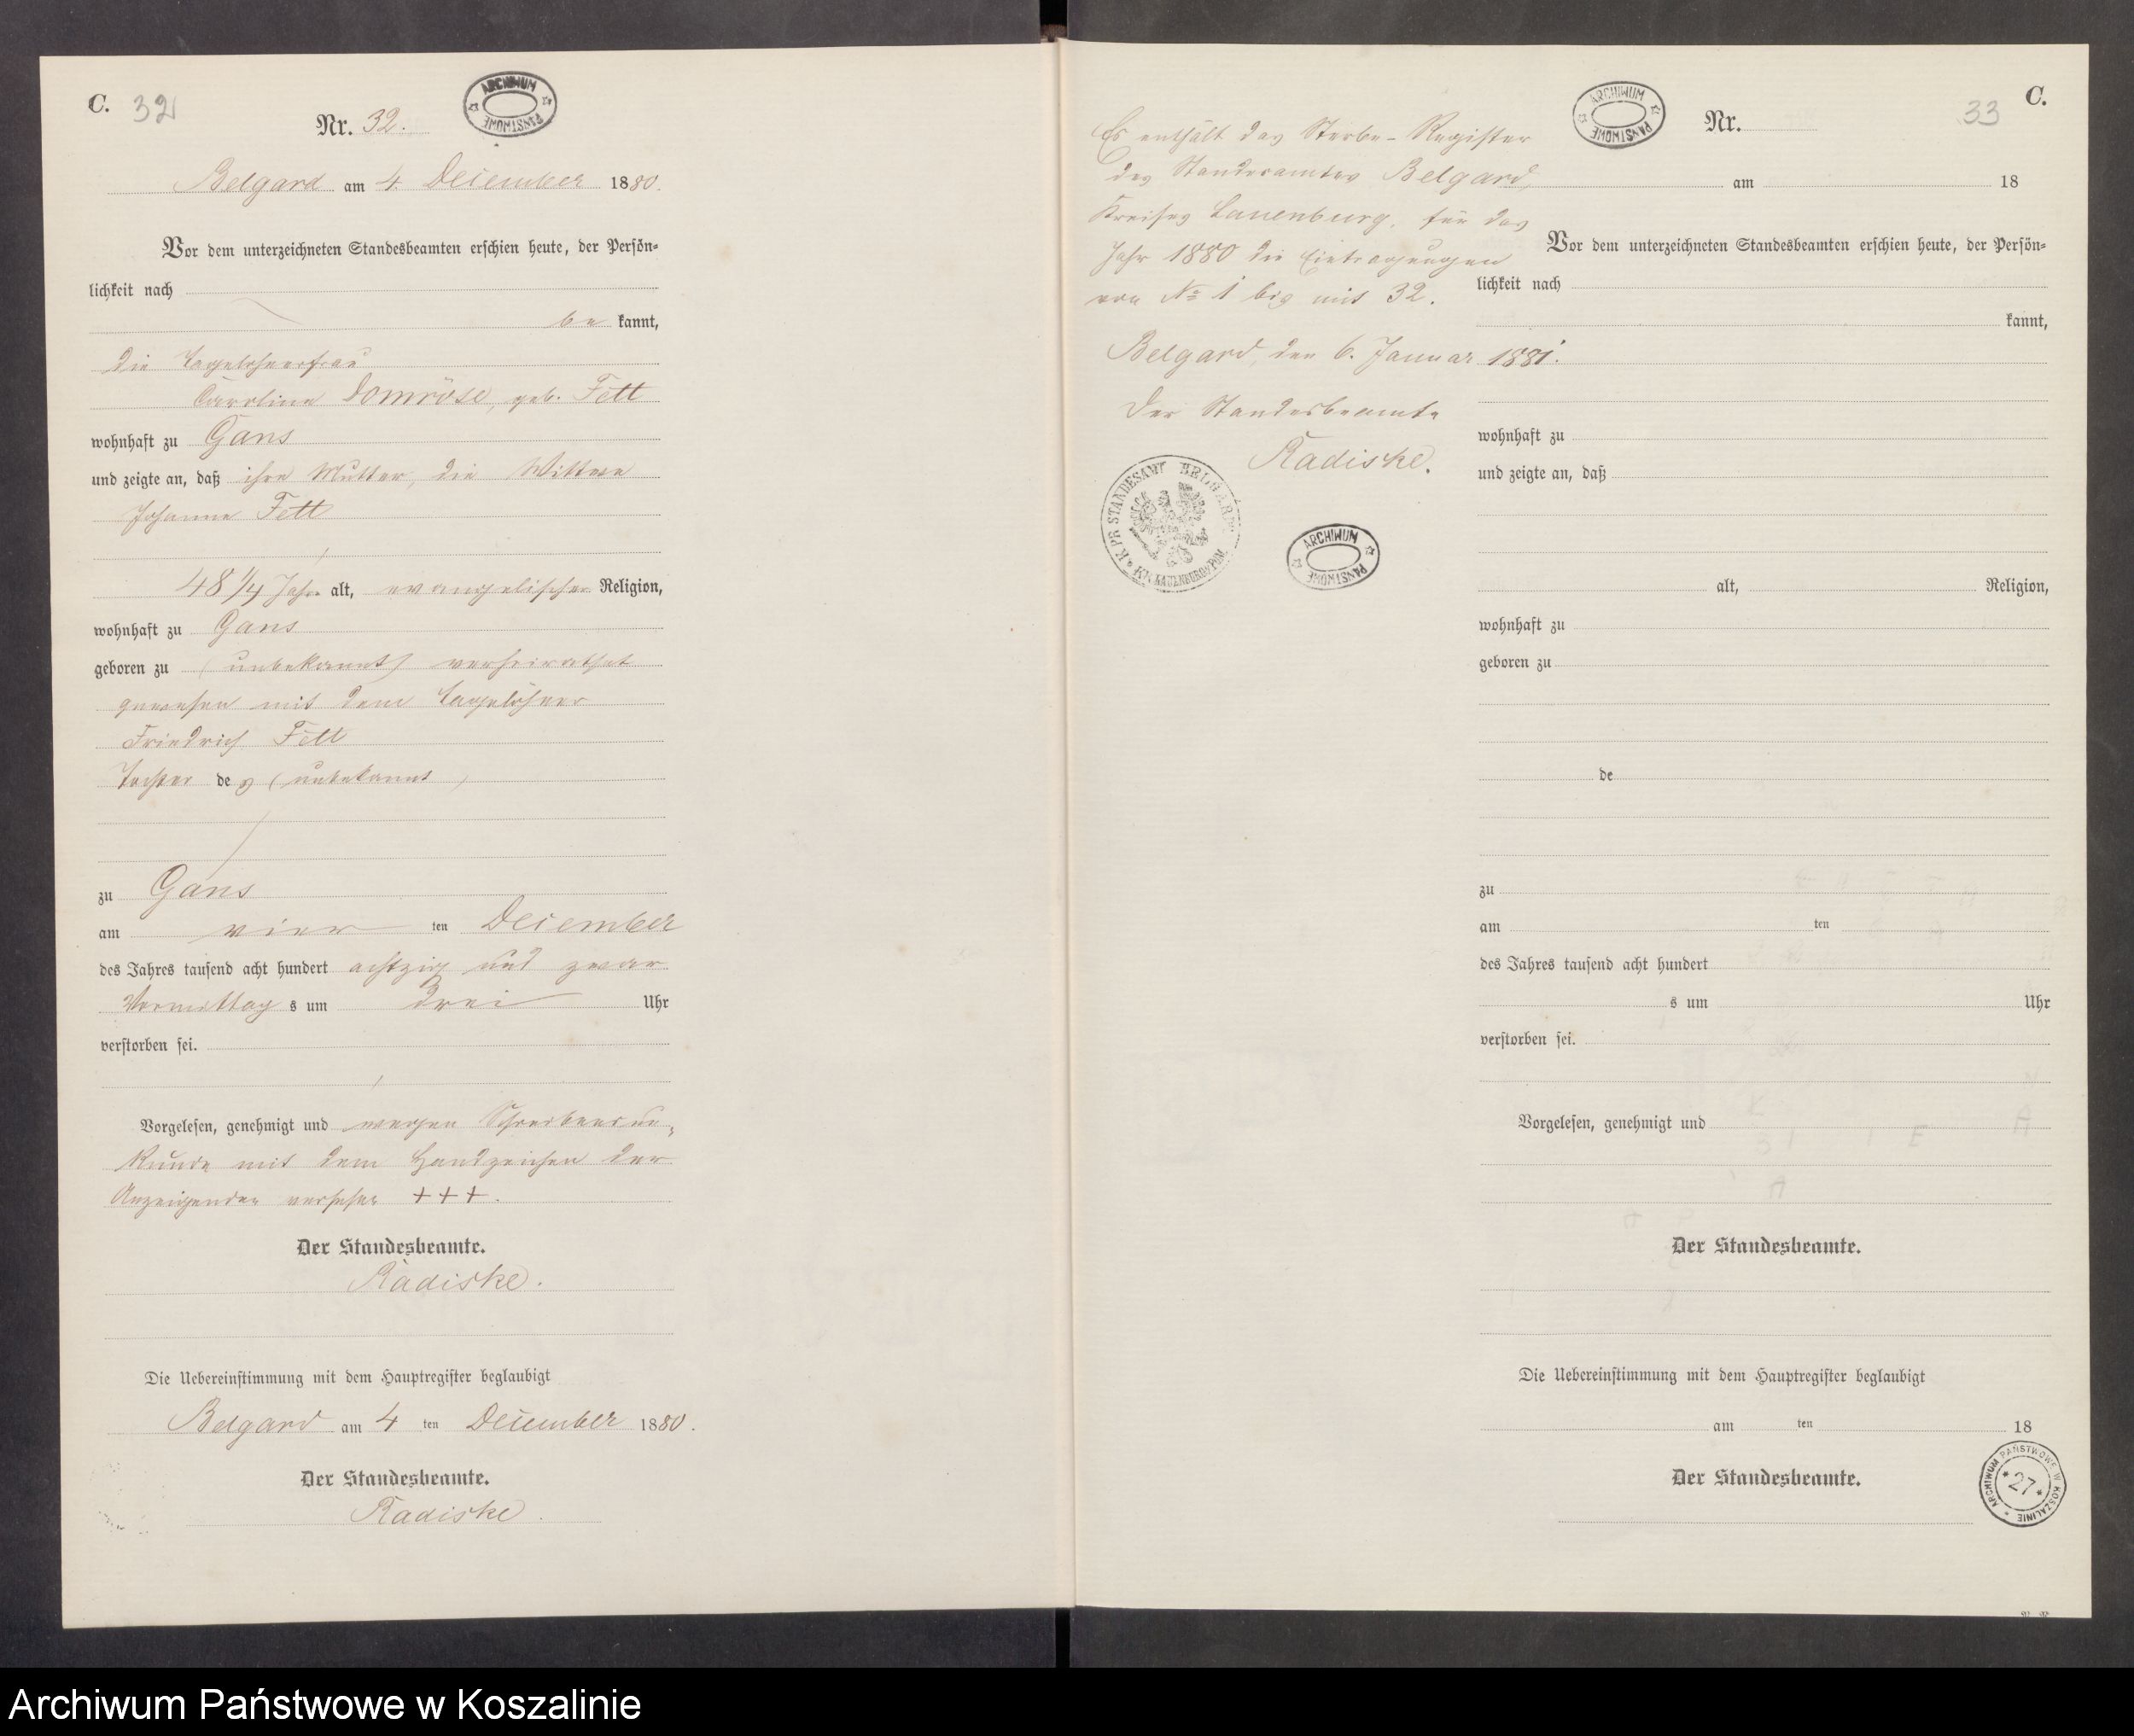 C. 32
Nr. 32.
ARCHIWUM PAŃSTWOWE
Belgard am 4. December 1880.
Vor dem unterzeichneten Standesbeamten erschien heute, der Persön-
lichkeit nach
be kannt,
die Tagelöhnerfrau
Caroline Domröse, geb. Fett
wohnhaft zu Gans
und zeigte an, daß ihre Mutter, die Wittwe
Johanne Fett
48 1/4 Jahre alt, evangelischer Religion,
wohnhaft zu Gans
geboren zu (unbekannt) verheirathet
gewesen mit dem Tagelöhner
Friedrich Fett
Tochter de s (unbekannt)
zu Gans
am vier ten December
des Jahres tausend acht hundert achtzig und zwar
Vormittag s um drei Uhr
verstorben sei.
Vorgelesen, genehmigt und wegen Schreibensun-
kunde mit dem Handzeichen der
Anzeigenden versehen +++.
Der Standesbeamte.
Radiske.
Die Uebereinstimmung mit dem Hauptregister beglaubigt
Belgard am 4 ten December 1880.
Der Standesbeamte.
Radiske.
Es enthält das Sterbe-Register
des Standesamtes Belgard,
Kreises Lauenburg, für das
Jahr 1880 die Eintragungen
von No 1 bis mit 32.
Belgard, den 6. Januar 1881.
Der Standesbeamte
Radiske.
K. PR. STANDESAMT BELGARD KR. LAUENBURG i/POM.
ARCHIWUM PAŃSTWOWE
ARCHIWUM PAŃSTWOWE
C.
33
Nr.
am 18
Vor dem unterzeichneten Standesbeamten erschien heute, der Persön-
lichkeit nach
kannt,
wohnhaft zu
und zeigte an, daß
alt, Religion,
wohnhaft zu
geboren zu
de
zu
am ten
des Jahres tausend acht hundert
s um Uhr
verstorben sei.
Vorgelesen, genehmigt und
Der Standesbeamte.
Die Uebereinstimmung mit dem Hauptregister beglaubigt
am ten 18
Der Standesbeamte.
ARCHIWUM PAŃSTWOWE W KOSZALINIE
*27*
Archiwum Państwowe w Koszalinie